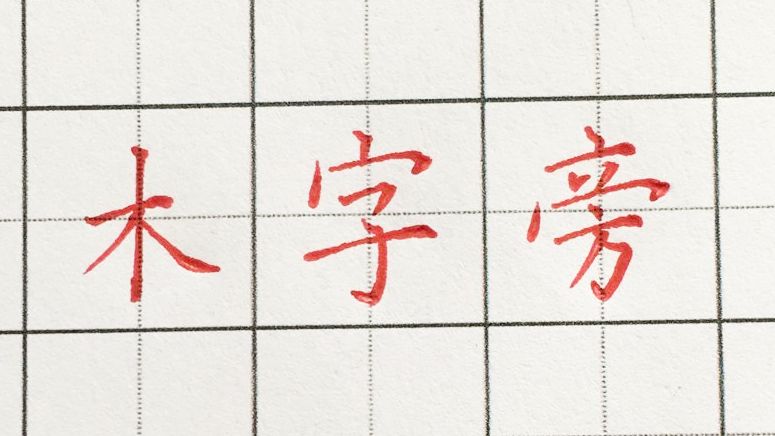 木字旁